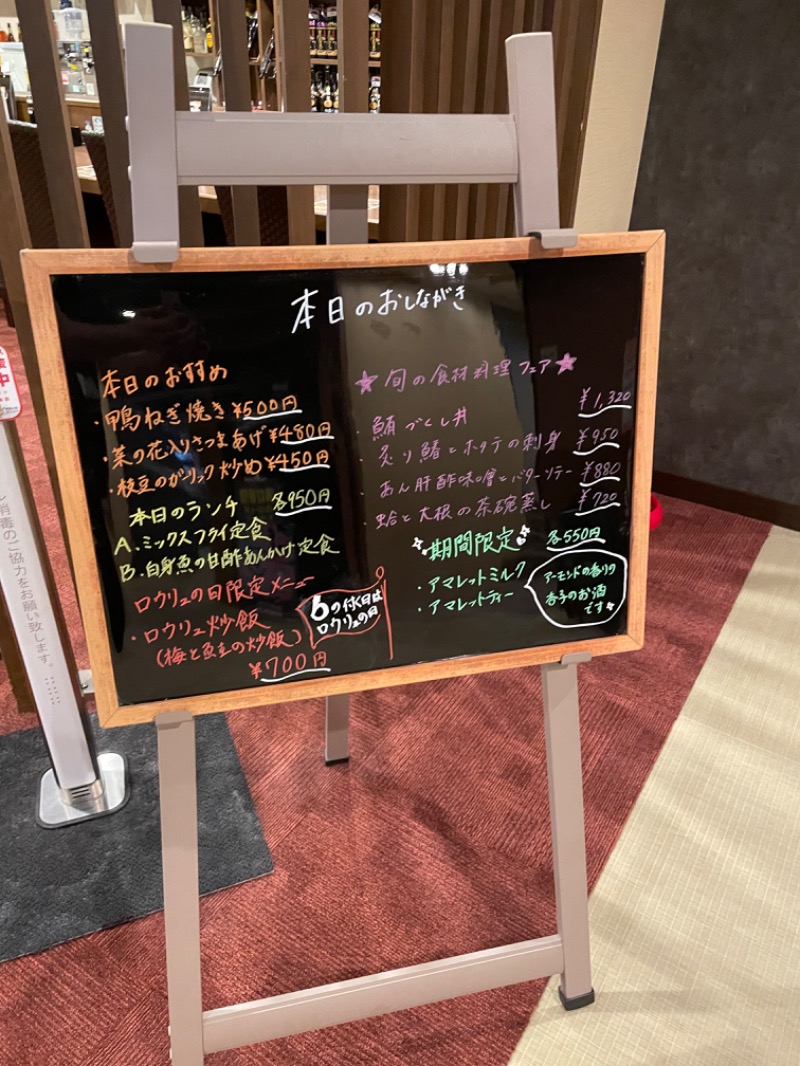 本日のおしながき
本日のおすすめ
・鴨ねぎ焼き ¥500円
・菜の花入りさつまあげ ¥480円
・枝豆のガーリック炒め ¥450円
本日のランチ 各950円
A. ミックスフライ定食
B. 白身魚の甘酢あんかけ定食
ロウリュの日限定メニュー
・ロウリュ炒飯
(梅と魚圭の炒飯)
¥700円
6の付く日は
ロウリュの日
★旬の食材料理フェア★
・鮪づくし丼 ¥1,320
・炙り鰆とホタテの刺身 ¥950
・あん肝酢味噌とバターソテー ¥880
・蛤と大根の茶碗蒸し ¥720
期間限定 各550円
・アマレットミルク
・アマレットティー
アーモンドの香りの
杏子のお酒
です
消毒のご協力をお願い致します。
中